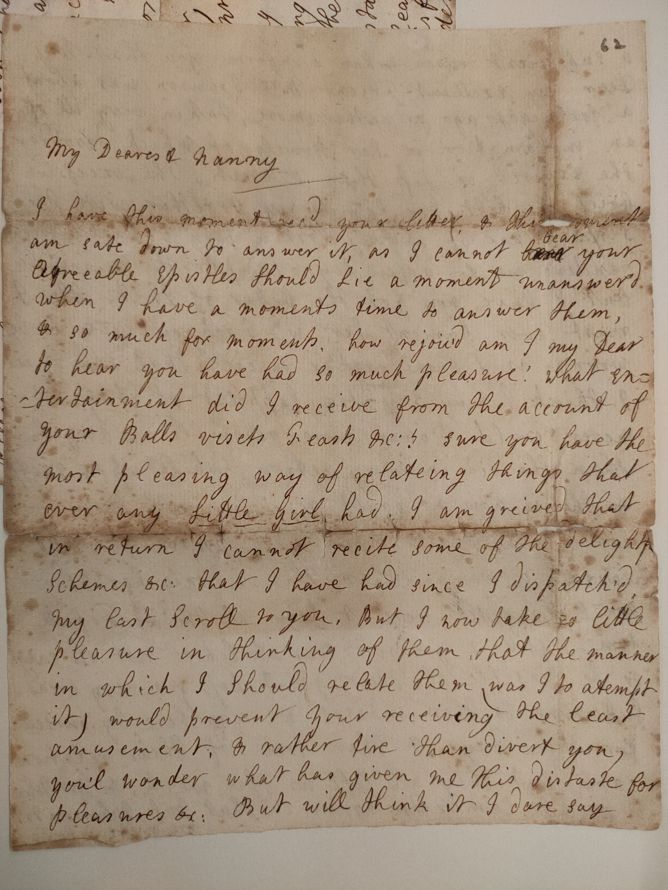 62
My Dearest Nanny
I have this moment rec'd your letter, & this moment
am sate down to answer it, as I cannot bear your
Agreeable Epistles should Lie a moment unanswer'd
when I have a moments time to answer them,
& so much for moments. how rejoic'd am I my Dear
to hear you have had so much pleasure! what en=
=tertainment did I receive from the account of
your Balls visets Feasts &c: sure you have the
most pleasing way of relateing things that
ever any Little Girl had. I am greived that
in return I cannot recite some of the delightf
Schemes &c: that I have had since I dispatch'd
my last Scroll to you. But I now take so little
pleasure in thinking of them that the manner
in which I Should relate them (was I to atempt
it) would prevent your receiving the least
amusement, & rather tire than divert you,
you'l wonder what has given me this distaste for
pleasures &c: But will think it I dare say